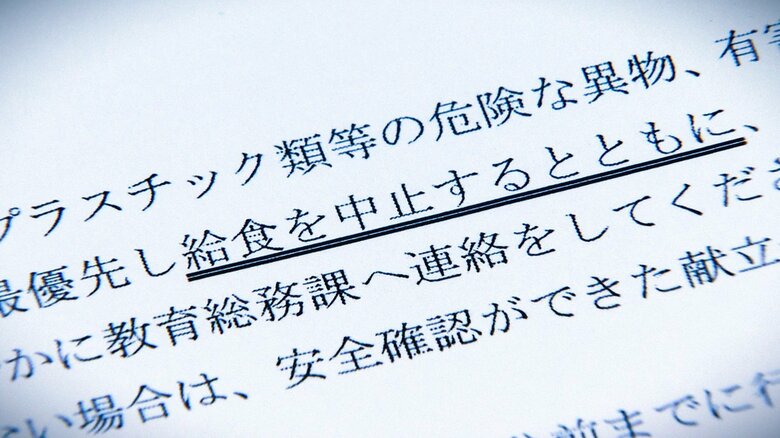 プラスチック類等の危険な異物、有害
最優先し給食を中止するとともに、
かに教育総務課へ連絡をしてくださ
い場合は、安全確認ができた献立
前までに行